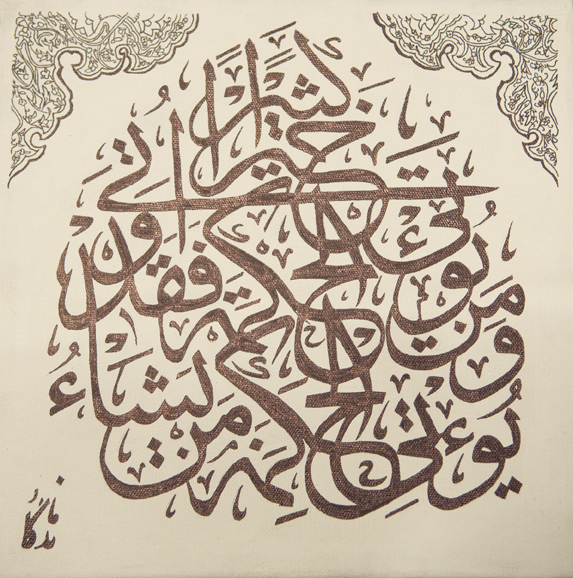 يُؤْتِي الْحِكْمَةَ مَن يَشَاءُ
وَمَن يُؤْتَ الْحِكْمَةَ فَقَدْ أُوتِيَ
خَيْرًا كَثِيرًا